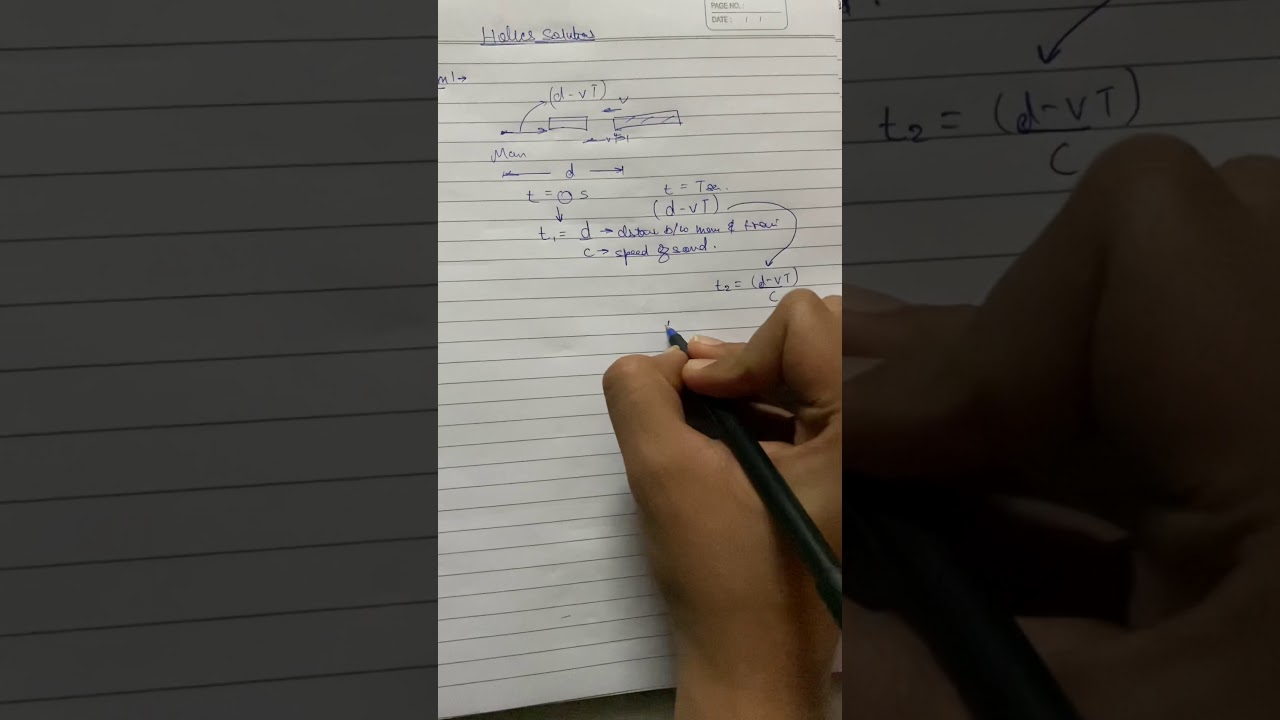 PAGE NO.:
DATE: / /
Solution
(d-vT)
v
Man
d
t = 0 s
t = T sec.
(d-vT)
t₁ = d → distance b/w man & train
c → speed of sound.
t₂ = (d-vT)
c
t₂ = (d-vT)
c